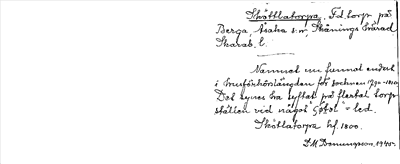 Sköttlatorpa, Fd. torp på
Berga, Asaka s:n, Skånings härad
Skarab. l.
Namnet nu funnet endast
i husförhörslängden för socknen 1790-1800.
Det synes ha syftat på flertal torp
ställen vid något "Götst" = led.
Sköttlatorpa hf. 1800.
1940.